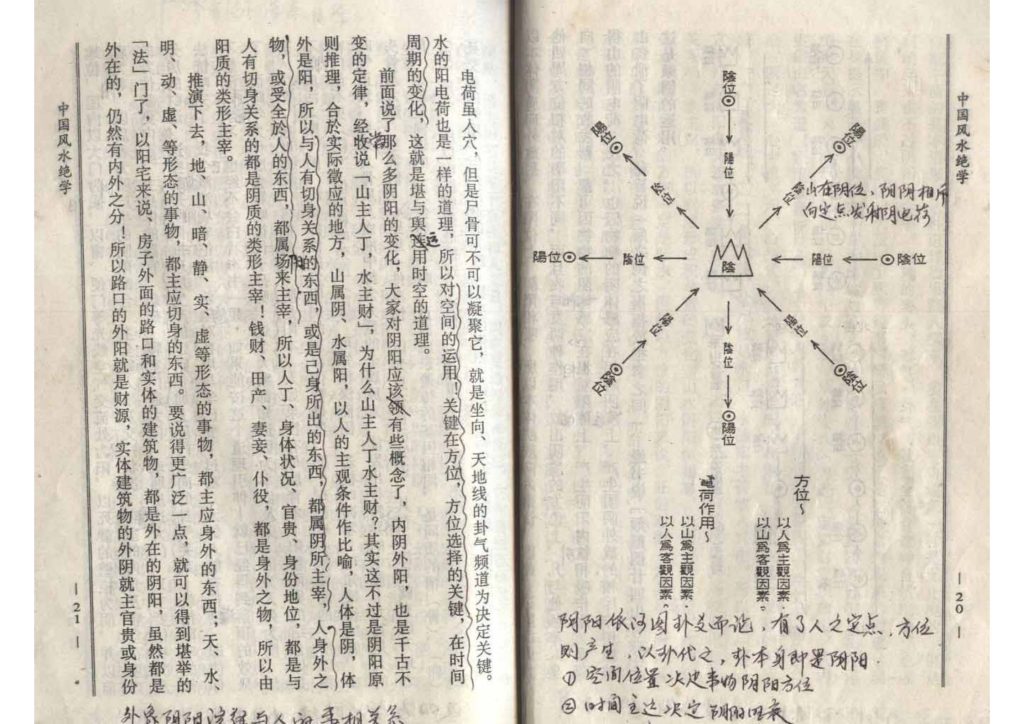 中国风水绝学
陰位
陽位
陽位
陽位
陰位
陰位
陽位
陰位
陰
陽位
陰位
陽位
陰位
陰位
陽位
山在阴位，阴阴相斥
方位～
以人爲主觀因素
以山爲客觀因素。
電荷作用～
以山爲主觀因素
以人爲客觀因素。
阴阳依河图卦爻而论，有了人之定点，方位
则产生，以卦代之，卦本身即是阴阳.
① 空间位置决定事物阴阳方位
—20—
中国风水绝学
电荷虽入穴，但是尸骨可不可以凝聚它，就是坐向、天地线的卦气频道为决定关键。
水的阳电荷也是一样的道理，所以对空间的运用！关键在方位，方位选择的关键，在时间
周期的变化，这就是堪与舆运用时空的道理。
前面说了那么多阴阳的变化，大家对阴阳应该领有些概念了，内阴外阳，也是千古不
变的定律，经常说「山主人丁，水主财」，为什么山主人丁水主财？其实这不过是阴阳原
则推理，合於实际徵应的地方，山属阴、水属阳，以人的主观条件作比喻，人体是阴，体
外是阳，所以与人有切身关系的东西，或是己身所出的东西，都属阴所主宰，人身外之
物，或受全於人的东西，都属阳来主宰，所以人丁、身体状况、官贵、身份地位，都是与
人有切身关系的都是阴质的类形主宰！钱财、田产、妻妾、仆役，都是身外之物，所以由
阳质的类形主宰。
推演下去，地、山、暗、静、实、虚等形态的事物，都主应身外的东西；天、水、
明、动、虚、等形态的事物，都主应切身的东西。要说得更广泛一点，就可以得到堪举的
「法」门了，以阳宅来说、房子外面的路口和实体的建筑物，都是外在的阴阳，虽然都是
外在的，仍然有内外之分！所以路口的外阳就是财源，实体建筑物的外阴就主官贵或身份
—21—